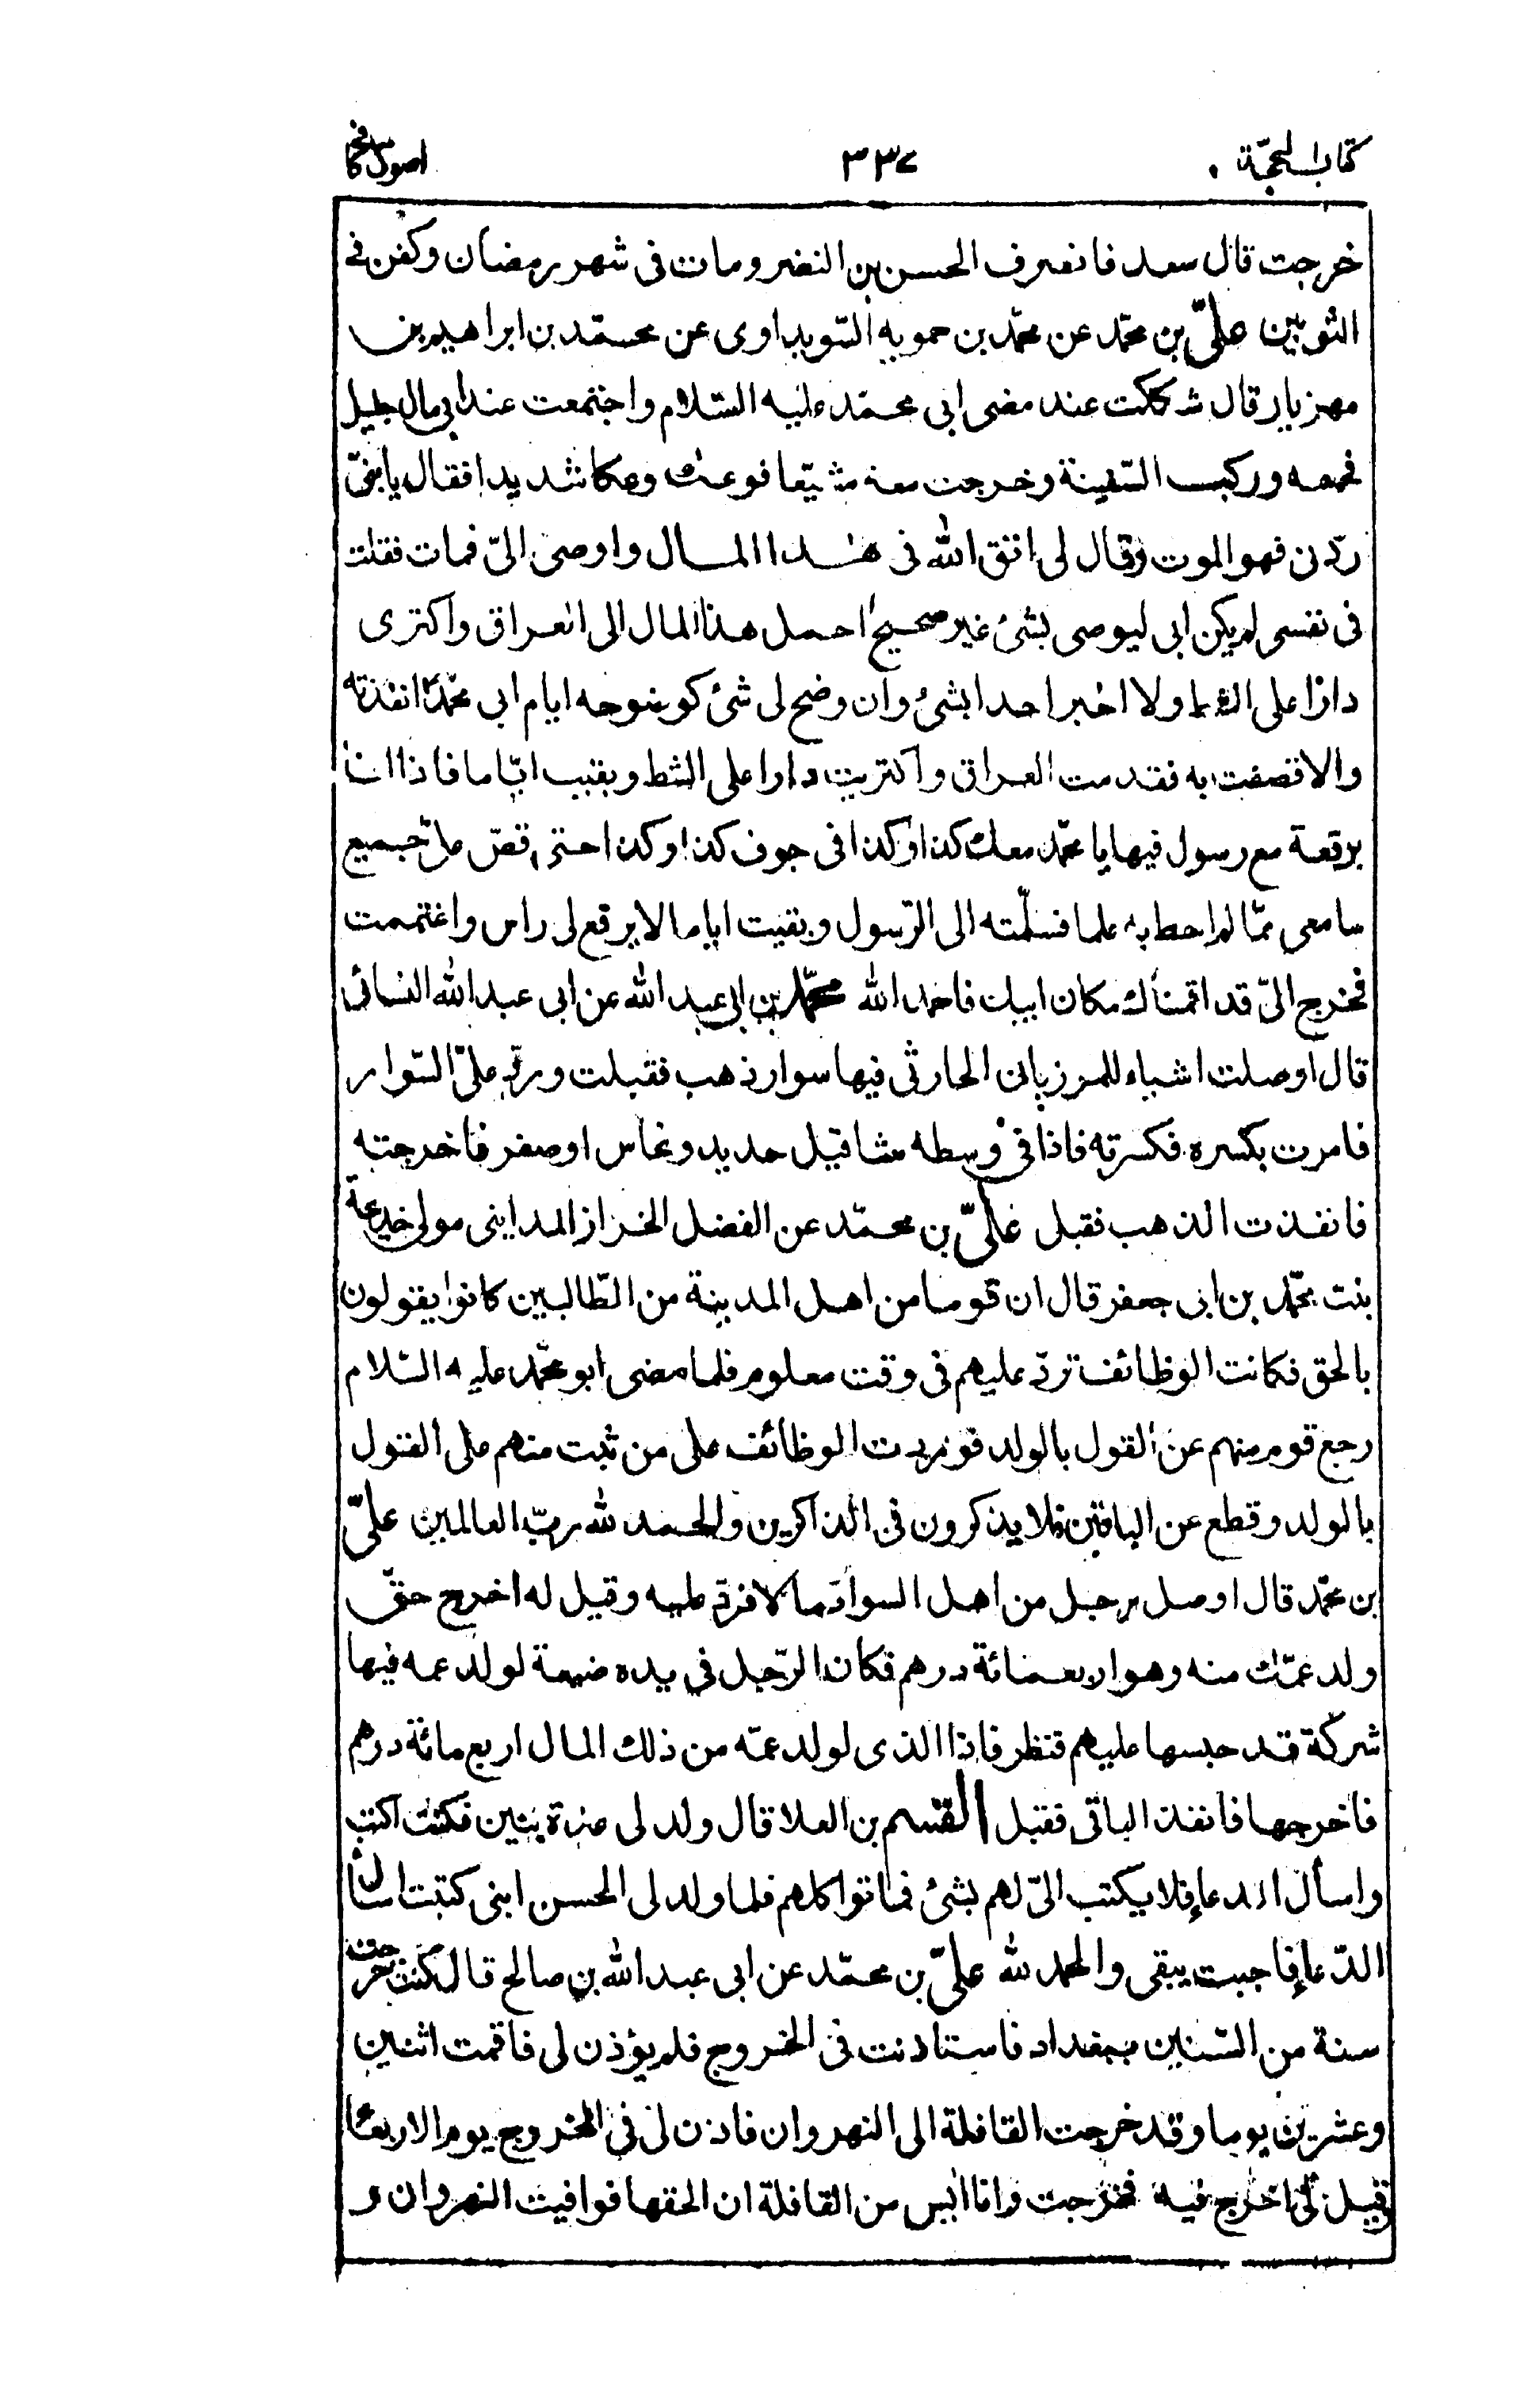 كتاب الحجّة
٣٣٧
اصول كافى
خرجت قال سعد فانصرف الحسن بن النضر ومات فى شهر رمضان وكفن فى
الثوبين علىّ بن محمّد عن محمّد بن حمويه السّويداوى عن محمّد بن ابراهيم بن
مهزيار قال شككت عند مضى ابى محمّد عليه السّلام واجتمعت عند ابى مال جليل
فحمله وركب السّفينة وخرجت معه مشيّعا فوعك وعكا شديدا فقال يا بنىّ
ردّنى فهو الموت وقال لى اتق الله فى هذا المال واوصى الىّ فمات فقلت
فى نفسى لم يكن ابى ليوصى بشئ غير صحيح احمل هذا المال الى العراق واكترى
دارا على الشط ولا اخبر احدا بشئ وان وضح لى شئ كوضوحه ايام ابى محمّد انفذته
والا قصفت به فقدمت العراق واكتريت دارا على الشط وبقيت ايّاما فاذا انا
برقعة مع رسول فيها يا محمّد معك كذا وكذا فى جوف كذا وكذا حتى قصّ علىّ جميع
ما معى ممّا لم احط به علما فسلّمته الى الرّسول وبقيت اياما لا يرفع لى راس واغتممت
فخرج الىّ قد اقمناك مكان ابيك فاحمد الله محمّد بن ابى عبد الله عن ابى عبد الله النسائى
قال اوصلت اشياء للمرزبانى الحارثى فيها سوار ذهب فقبلت وردّ علىّ السّوار
فامرت بكسره فكسرته فاذا فى وسطه مثاقيل حديد ونحاس اوصفر فاخرجته
فانفذت الذهب فقبل علىّ بن محمّد عن الفضل الخزاز المداينى مولى خديجة
بنت محمّد بن ابى جعفر قال ان قوما من اهل المدينة من الطّالبين كانوا يقولون
بالحق فكانت الوظائف تردّ عليهم فى وقت معلوم فلما مضى ابو محمّد عليه السّلام
رجع قوم منهم عن القول بالولد فوردت الوظائف على من ثبت منهم على القول
بالولد وقطع عن الباقين فلا يذكرون فى الذاكرين والحمد لله ربّ العالمين علىّ
بن محمّد قال اوصل رجل من اهل السواد مالا فردّ عليه وقيل له اخرج حقّ
ولد عمّك منه وهو اربعمائة درهم فكان الرّجل فى يده ضيعة لولد عمه فيها
شركة قد حبسها عليهم فنظر فاذا الذى لولد عمّه من ذلك المال اربع مائة درهم
فاخرجها فانفذ الباقى فقبل القسم بن العلا قال ولد لى عدة بنين فكنت اكتب
واسأل الدعاء فلا يكتب الىّ لهم بشئ فماتوا كلهم فلما ولد لى الحسن ابنى كتبت اسأل
الدّعاء فاجبت يبقى والحمد لله علىّ بن محمّد عن ابى عبد الله بن صالح قال كنت خرجت
سنة من السّنين ببغداد فاستاذنت فى الخروج فلم يؤذن لى فاقمت اثنين
وعشرين يوما وقد خرجت القافلة الى النهروان فاذن لى فى الخروج يوم الاربعاء
وقيل لى اخرج فيه فخرجت وانا ايس من القافلة ان الحقها فوافيت النهروان و